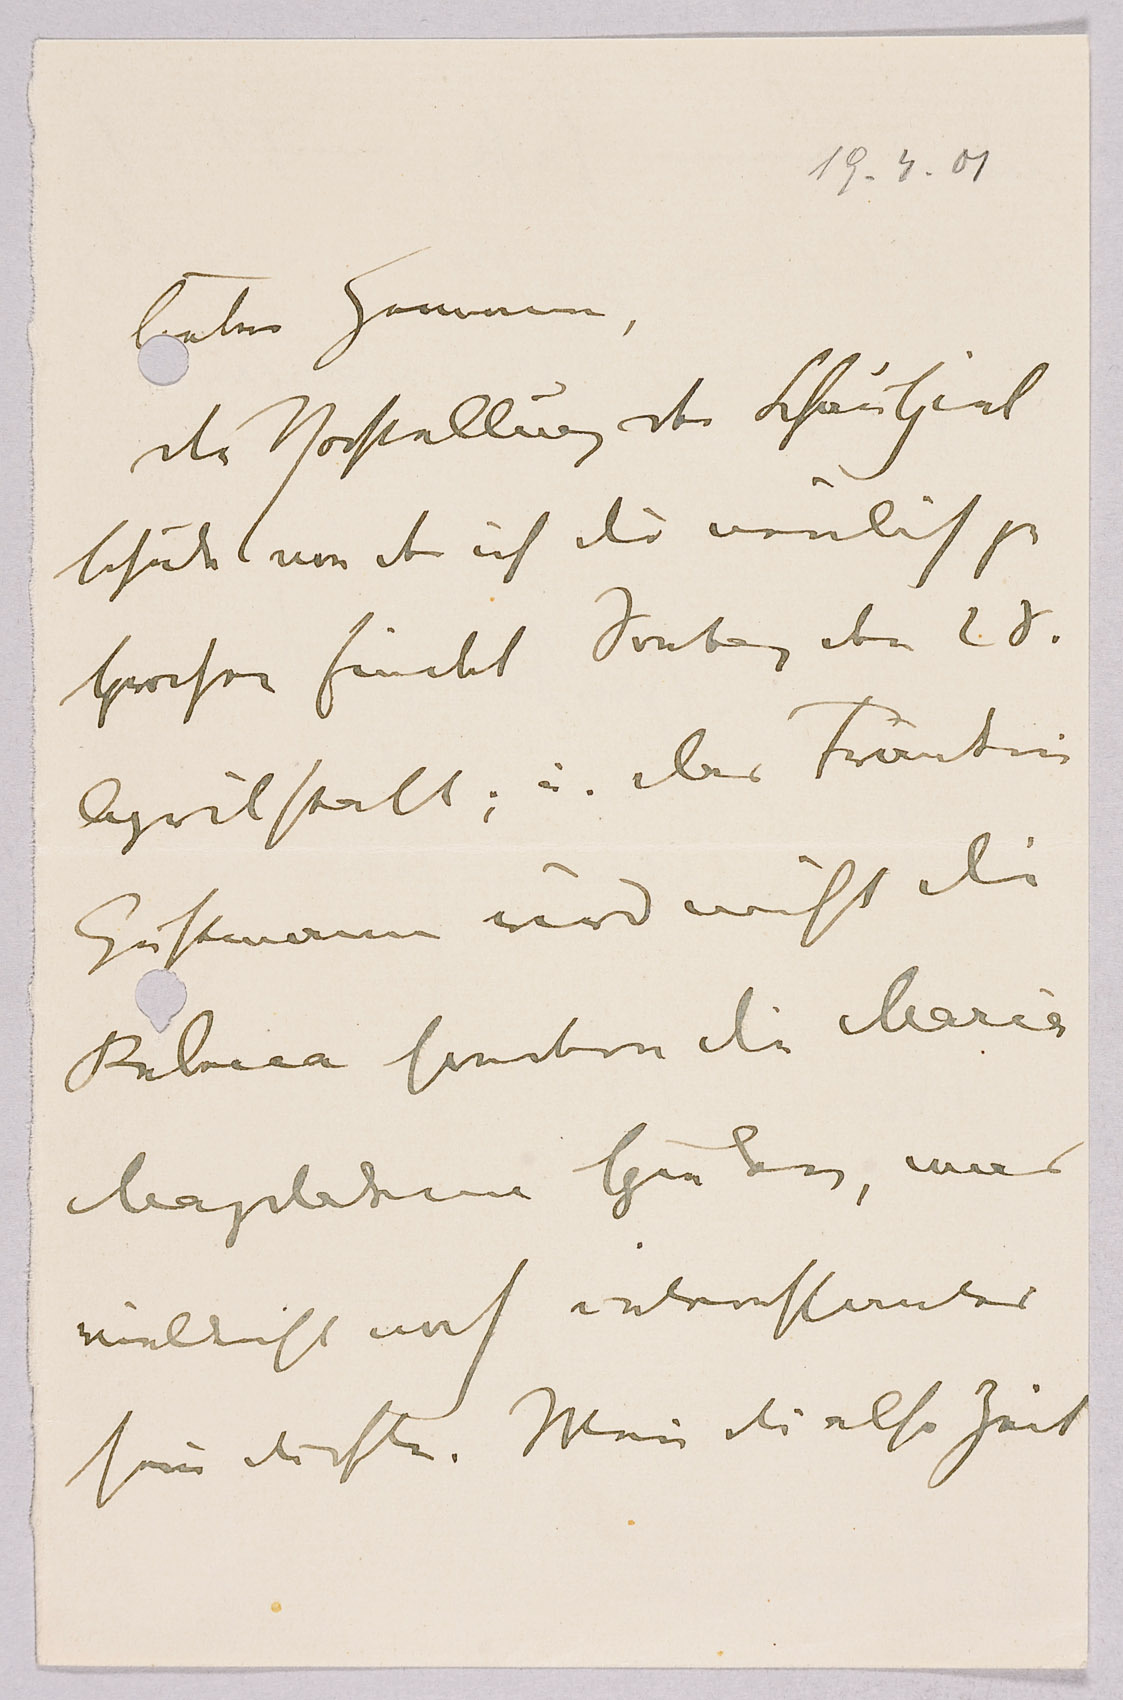 19. 4. 01
lieber Hermann,
die Vorstellung der Schauspiel
schule von der ich dir neulich ge
sprochen findet Sonntag den 28.
April statt; u. das Fräulein
Gussmann wird nicht die
Rebecca sondern die Maria
Magdalena spielen, was
vielleicht noch interessanter
sein dürfte. Wenn du also Zeit